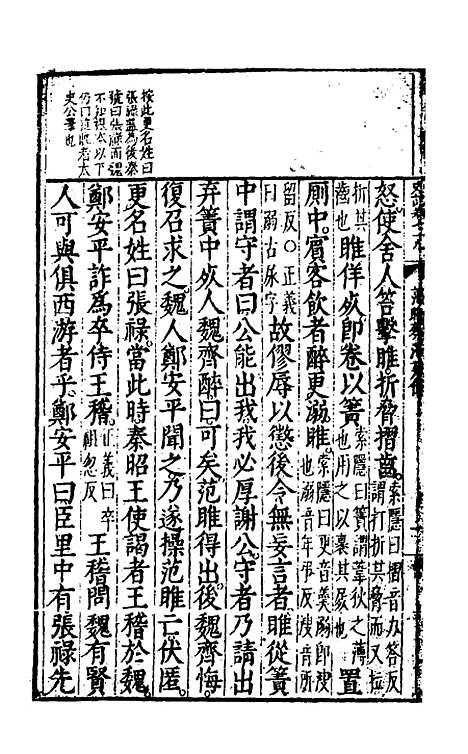 怒使舍人笞擊雎折脅摺齒索隱曰摺音力答反謂打折其脅而又拉
折其齒也雎佯死即卷以簀索隱曰簀謂葦荻之薄也用之以裹其屍也置
廁中賓客飲者醉更溺雎索隱曰更音羹溺即溲也溺音年弔反溲音所
留反○正義曰溺古尿字故僇辱以懲後令無妄言者雎從簀
中謂守者曰公能出我我必厚謝公守者乃請出
弃簀中死人魏齊醉曰可矣范雎得出後魏齊悔
復召求之魏人鄭安平聞之乃遂操范雎亡伏匿
更名姓曰張祿當此時秦昭王使謁者王稽於魏
鄭安平詐為卒侍王稽正義曰卒祖忽反王稽問魏有賢
人可與俱西游者乎鄭安平曰臣里中有張祿先
按此更名姓曰
張祿蓋為後秦
號曰張祿而魏
不知
史公筆也